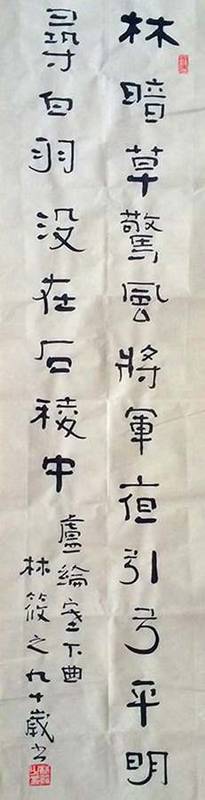 林暗草驚風將軍夜引弓平明
尋白羽没在石稜中
盧綸塞下曲
林筱之九十歲书